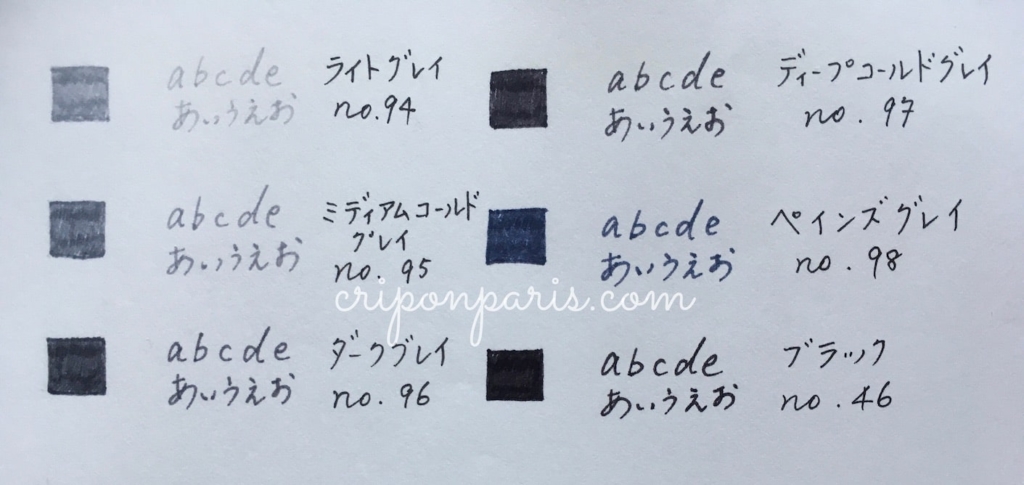 abcde
あいうえお
ライトグレイ
no.94
abcde
あいうえお
ミディアムコールド
グレイ
no. 95
abcde
あいうえお
ダークグレイ
no. 96
abcde
あいうえお
ディープコールドグレイ
no. 97
abcde
あいうえお
ペインズグレイ
no. 98
abcde
あいうえお
ブラック
no. 46
criponparis.com